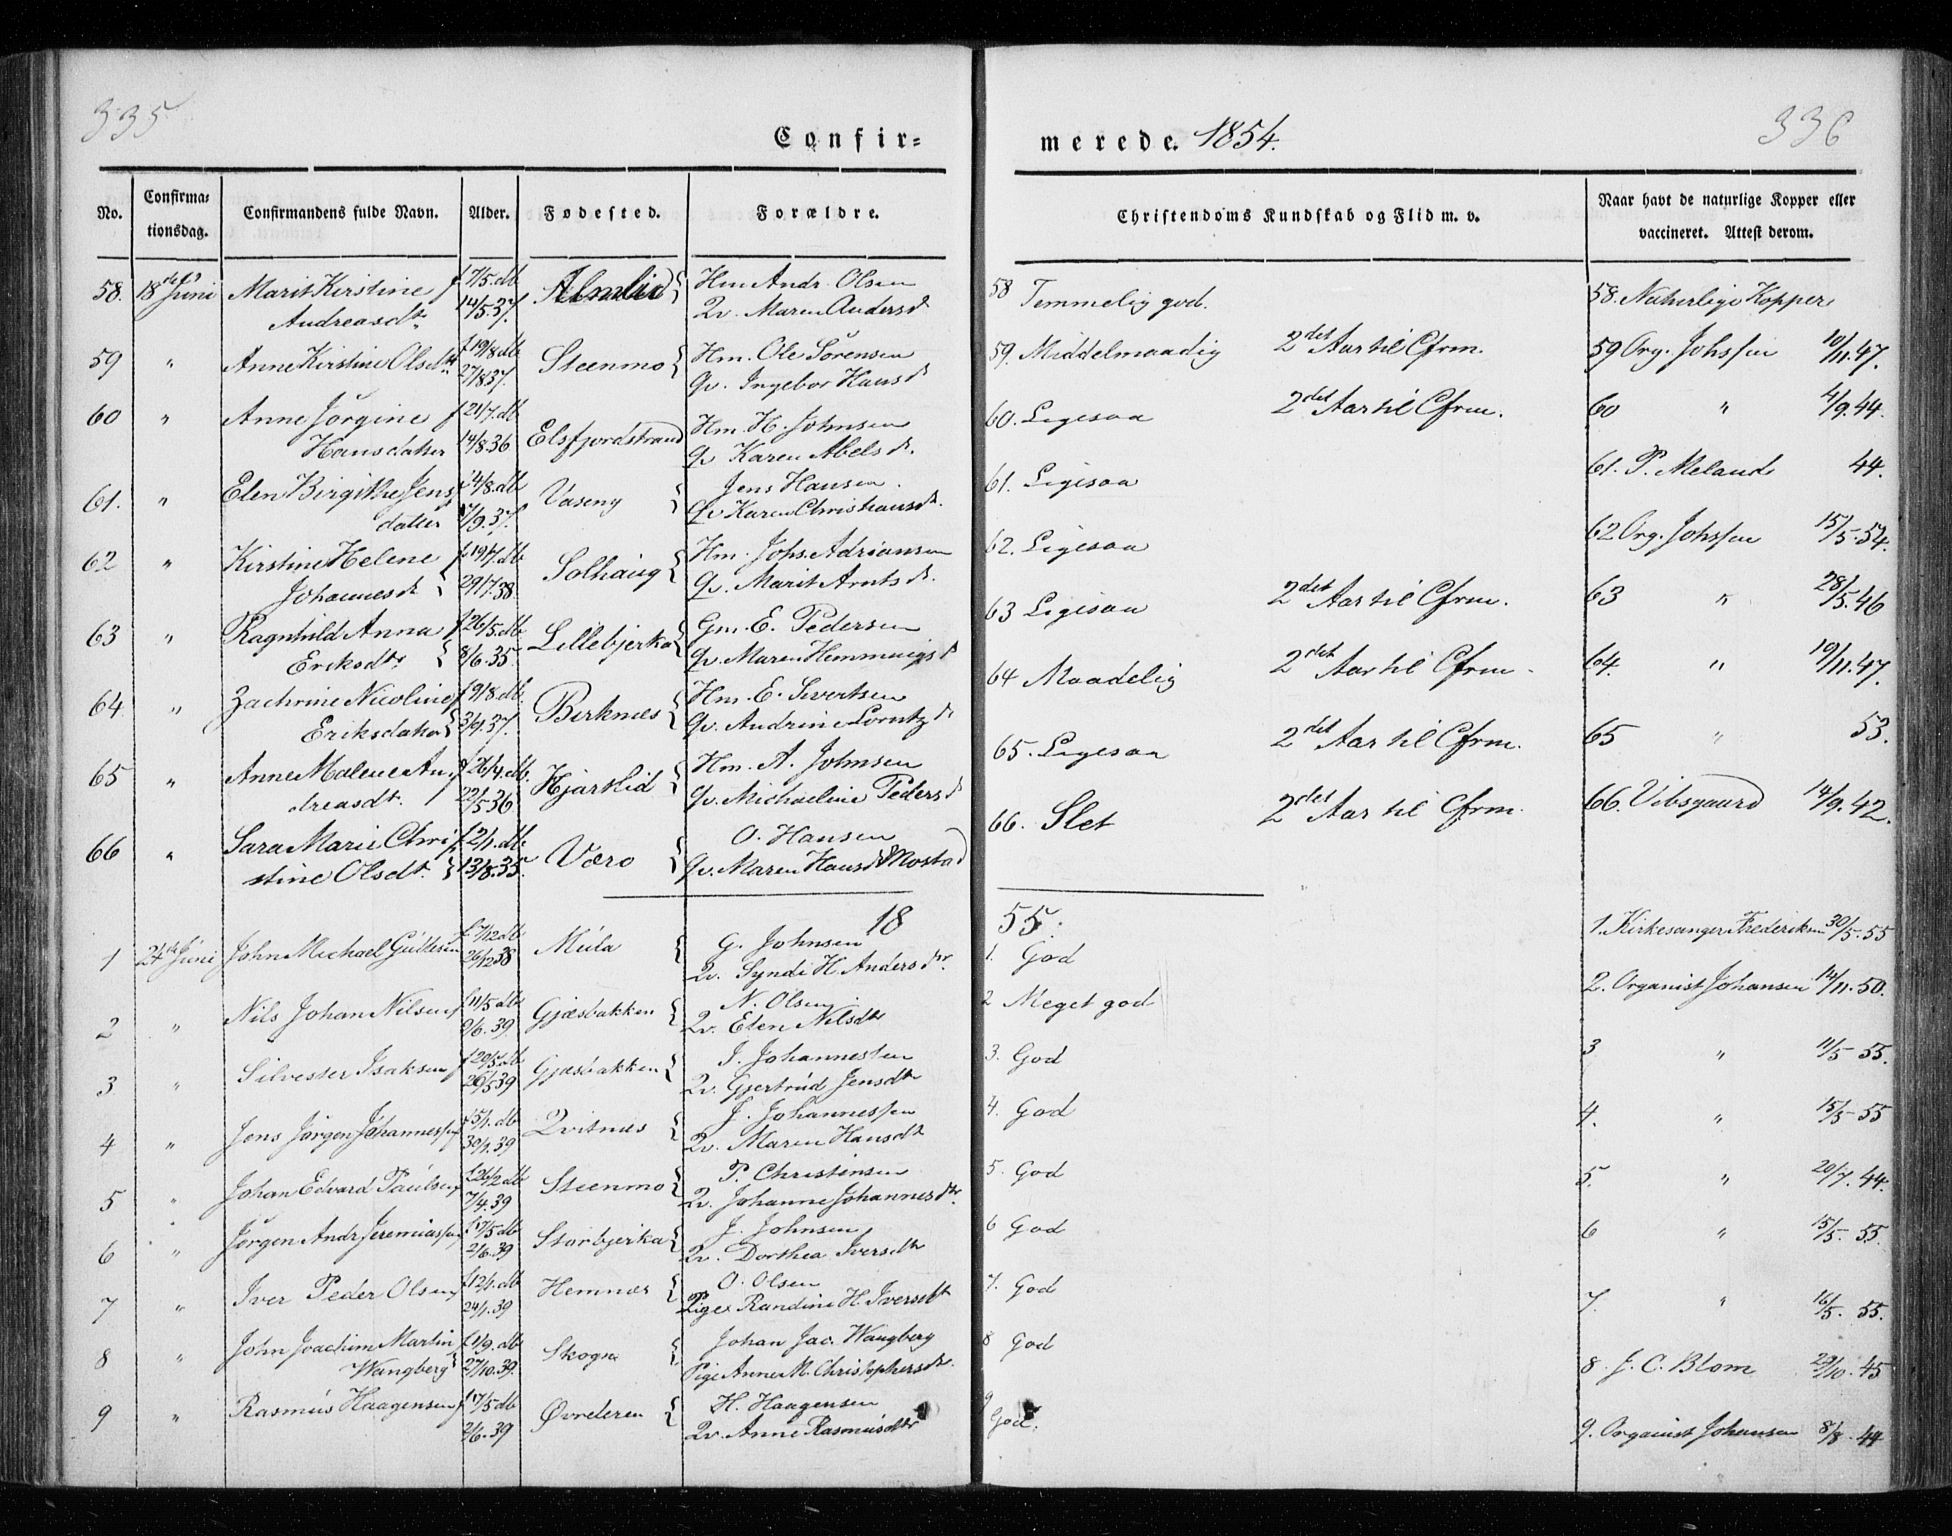 335
336
Confir=
merede. 1854.
No.
Confirma=
tionsdag.
Confirmandens fulde Navn.
Alder.
Fødested.
Forældre.
Christendoms Kundskab og Flid m. v.
Naar havt de naturlige Kopper eller
vaccineret. Attest derom.
58. 18de Juni Marit Kirstine f 7/5. db Almlid Hm Andr. Olsen 58 Temmelig god. 58. Naturlige Kopper
Andreasdt. 14/5 37. Qv. Maren Andersd
59 " Anne Kirstine Olsdtr f 19/8 db Steenmo Hm. Ole Sørensen 59. Middelmaadig 2det Aar til Cfrm. 59 Org. Johssen 10/11. 47.
27/8 37. Qv. Ingebor Hansd
60 " Anne Jørgine f 21/7. db Elsfjordstrand Hm. H. Johnsen 60. Ligesaa 2det Aar til Cfrm. 60 " 4/9. 44.
Hansdatter 14/8. 36 Qv Karen Abelsd.
61. " Elen Birgithe Jens 24/8. db Vaseng Jens Hansen 61. Ligesaa 61. P. Meland 44.
datter 7/9. 37. Qv Karen Christiansd.
62 " Kirstine Helene f 19/7. db Solhaug Hm. Johs Adriansen 62. Ligesaa 62 Org. Johssen 15/5. 54.
Johannesd 29/7. 38 Qv. Marit Arntsd.
63 " Ragnhild Anna f 26/5. db Lillebjerka Gm. E. Pedersen 63 Ligesaa 2det Aar til Cfrm. 63 " 28/5. 46
Eriksdtr 8/6. 35. Qv. Maren Hemmingsd
64 " Zachrine Nicoline f 9/8. db Birknes Hm. E. Sivertsen 64 Maadelig 2det Aar til Cfrm. 64. " 19/11. 47.
Eriksdatter 3/9. 37. Qv. Andrine Lorntzd
65 " Anne Malene An f 26/4. db. Hjartlid Hm. A. Johnsen 65. Ligesaa 2det Aar til Cfrm. 65 " 53.
dreasdt. 22/5 36 Qv. Michaeline Pedersd
66 " Sara Marie Chri f 2/1. db Værø O. Hansen 66. Slet 2det Aar til Cfrm. 66. Vibsgaard 14/9. 42.
stine Olsdt. 13/8. 35. Qv. Maren Hansd Mostad
18 55.
1 24de Juni John Michael Gullesen f 7/12 db Mula G. Johnsen 1. God 1. Kirkesanger Frederiksen 30/5. 55
26/12 38 Qv. Syndi H. Andersdtr.
2 " Nils Johan Nilsen f 11/5 db Gjæsbakken N. Olsen 2 Meget god 2. Organist Johansen 14/11. 50.
2/6. 39 Qv. Elen Nilsdtr
3 " Silvester Isaksen f 20/5 db Gjæsbakken I. Johannessen 3. God 3 " 11/5 55.
26/5 39 Qv. Gjertrud Jensdtr
4 " Jens Jørgen Johannessen f 5/1. db Qvitnes J. Johannessen 4. God 4. " 15/5 55
30/1. 39 Qv. Maren Hansdtr
5 " Johan Edvard Paulsen f 26/2 db Steenmo P. Christensen 5. God 5. " 20/7. 44.
7/4. 39 Qv. Johanne Johannesdtr.
6 " Jørgen Andr Jeremiassen f 17/5 db Storbjerka J. Johnsen 6 God 6 " 15/5. 55.
2/6. 39 Qv. Dorthea Iversdtr
7 " Iver Peder Olsen f 12/1. db Hemnæs O. Olsen 7. God 7. " 16/5. 55.
24/1. 39 Pige Randine H. Iversdtr
8 " John Joachim Martin f 1/9. db Skogn Johan Jac. Wangberg 8 God 8. J. C. Blom 29/10. 45
Wangberg 27/10. 39. Pige Anne M. Christophersdtr.
9 " Rasmus Haagensen f 17/5 db Øvrederen H. Haagensen 9 God. 9. Organist Johansen 8/8. 44
2/6. 39 Qv. Anne Rasmusdtr